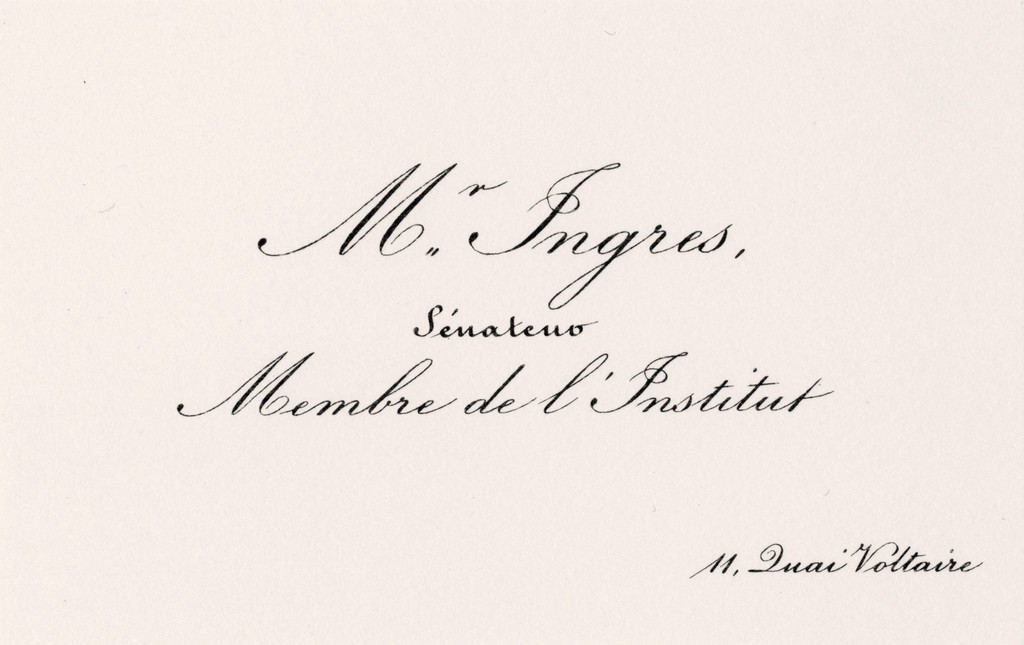 Mr Ingres,
Sénateur
Membre de l'Institut
11, Quai Voltaire